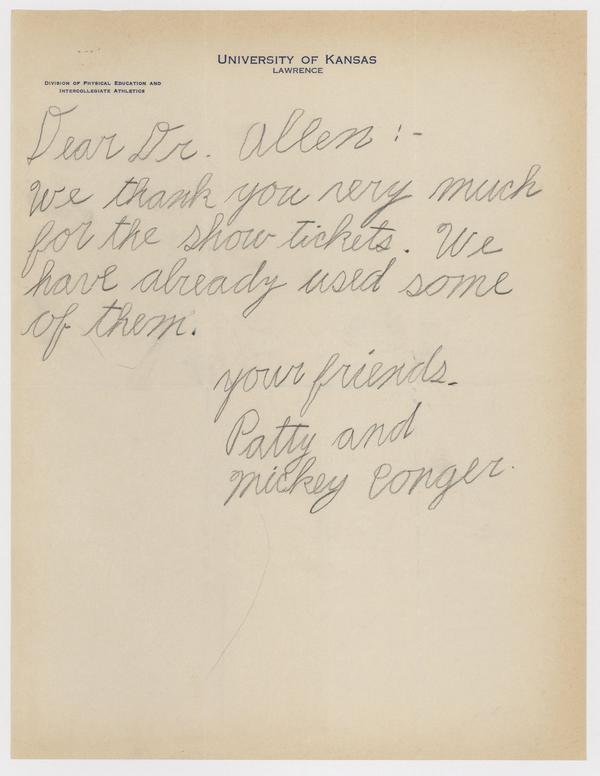 University of Kansas
Lawrence
Division of Physical Education and
Intercollegiate Athletics
Dear Dr. Allen :-
We thank you very much
for the show tickets. We
have already used some
of them.
your friends.
Patty and
Mickey Conger.